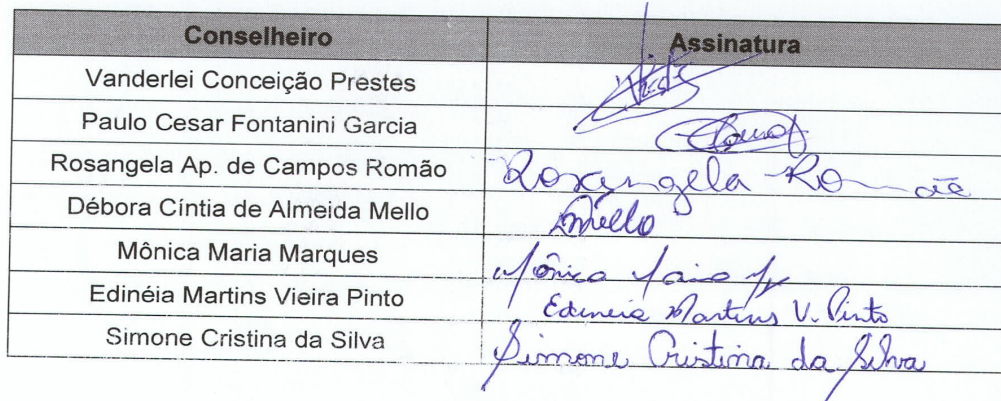 Conselheiro Assinatura
Vanderlei Conceição Prestes
Paulo Cesar Fontanini Garcia
Rosangela Ap. de Campos Romão Rosangela Romão
Débora Cíntia de Almeida Mello DMello
Mônica Maria Marques Mônica Maria
Edinéia Martins Vieira Pinto Edineia Martins V. Pinto
Simone Cristina da Silva Simone Cristina da Silva